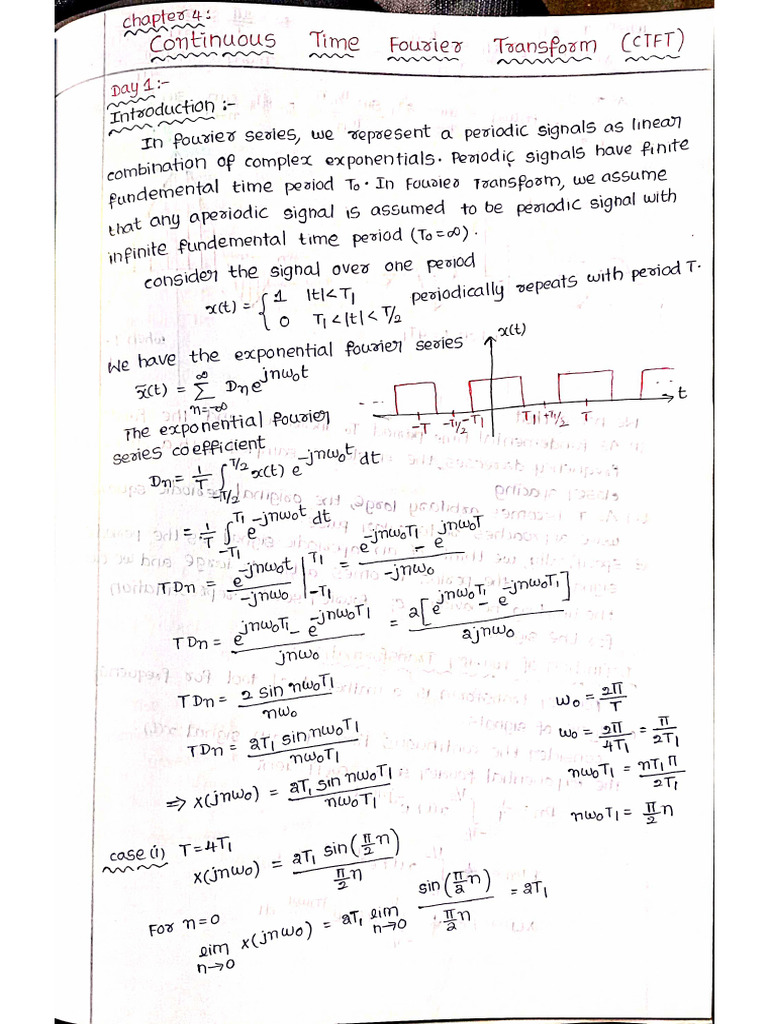 chapter 4:
Continuous Time Fourier Transform (CTFT)
Day 1:-
Introduction :-
In fourier series, we represent a periodic signals as linear
combination of complex exponentials. Periodic signals have finite
fundemental time period T₀. In Fourier Transform, we assume
that any aperiodic signal is assumed to be periodic signal with
infinite fundemental time period (T₀=∞).
consider the signal over one period
x(t) = { 1 |t|<T₁
0 T₁<|t|<T/2 periodically repeats with period T.
We have the exponential fourier series
x̃(t) = Σ_{n=-∞}^{∞} Dₙ e^{jnω₀t}
x(t)
t
-T -T/2 -T₁ T₁ T/2 T
The exponential fourier
series coefficient
Dₙ = 1/T ∫_{-T/2}^{T/2} x(t) e^{-jnω₀t} dt
= 1/T ∫_{-T₁}^{T₁} e^{-jnω₀t} dt
TDₙ = e^{-jnω₀t}/-jnω₀ |_{-T₁}^{T₁} = (e^{-jnω₀T₁} - e^{jnω₀T})/-jnω₀
TDₙ = (e^{jnω₀T₁} - e^{-jnω₀T₁})/jnω₀ = 2[e^{jnω₀T₁} - e^{-jnω₀T₁}]/2jnω₀
TDₙ = 2 sin nω₀T₁/nω₀
ω₀ = 2π/T
TDₙ = 2T₁ sin nω₀T₁/nω₀T₁
ω₀ = 2π/4T₁ = π/2T₁
⇒ X(jnω₀) = 2T₁ sin nω₀T₁/nω₀T₁
nω₀T₁ = nT₁π/2T₁
nω₀T₁ = π/2 n
case (i) T=4T₁
X(jnω₀) = 2T₁ sin(π/2 n)/(π/2 n)
For n=0
lim_{n→0} X(jnω₀) = 2T₁ lim_{n→0} sin(π/2 n)/(π/2 n) = 2T₁